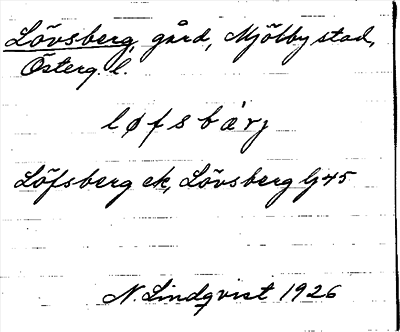 Lövsberg, gård, Mjölby stad,
Österg. l.
løfsbærj
Löfsberg ek, Lövsberg Gj 45
N. Lindqvist 1926